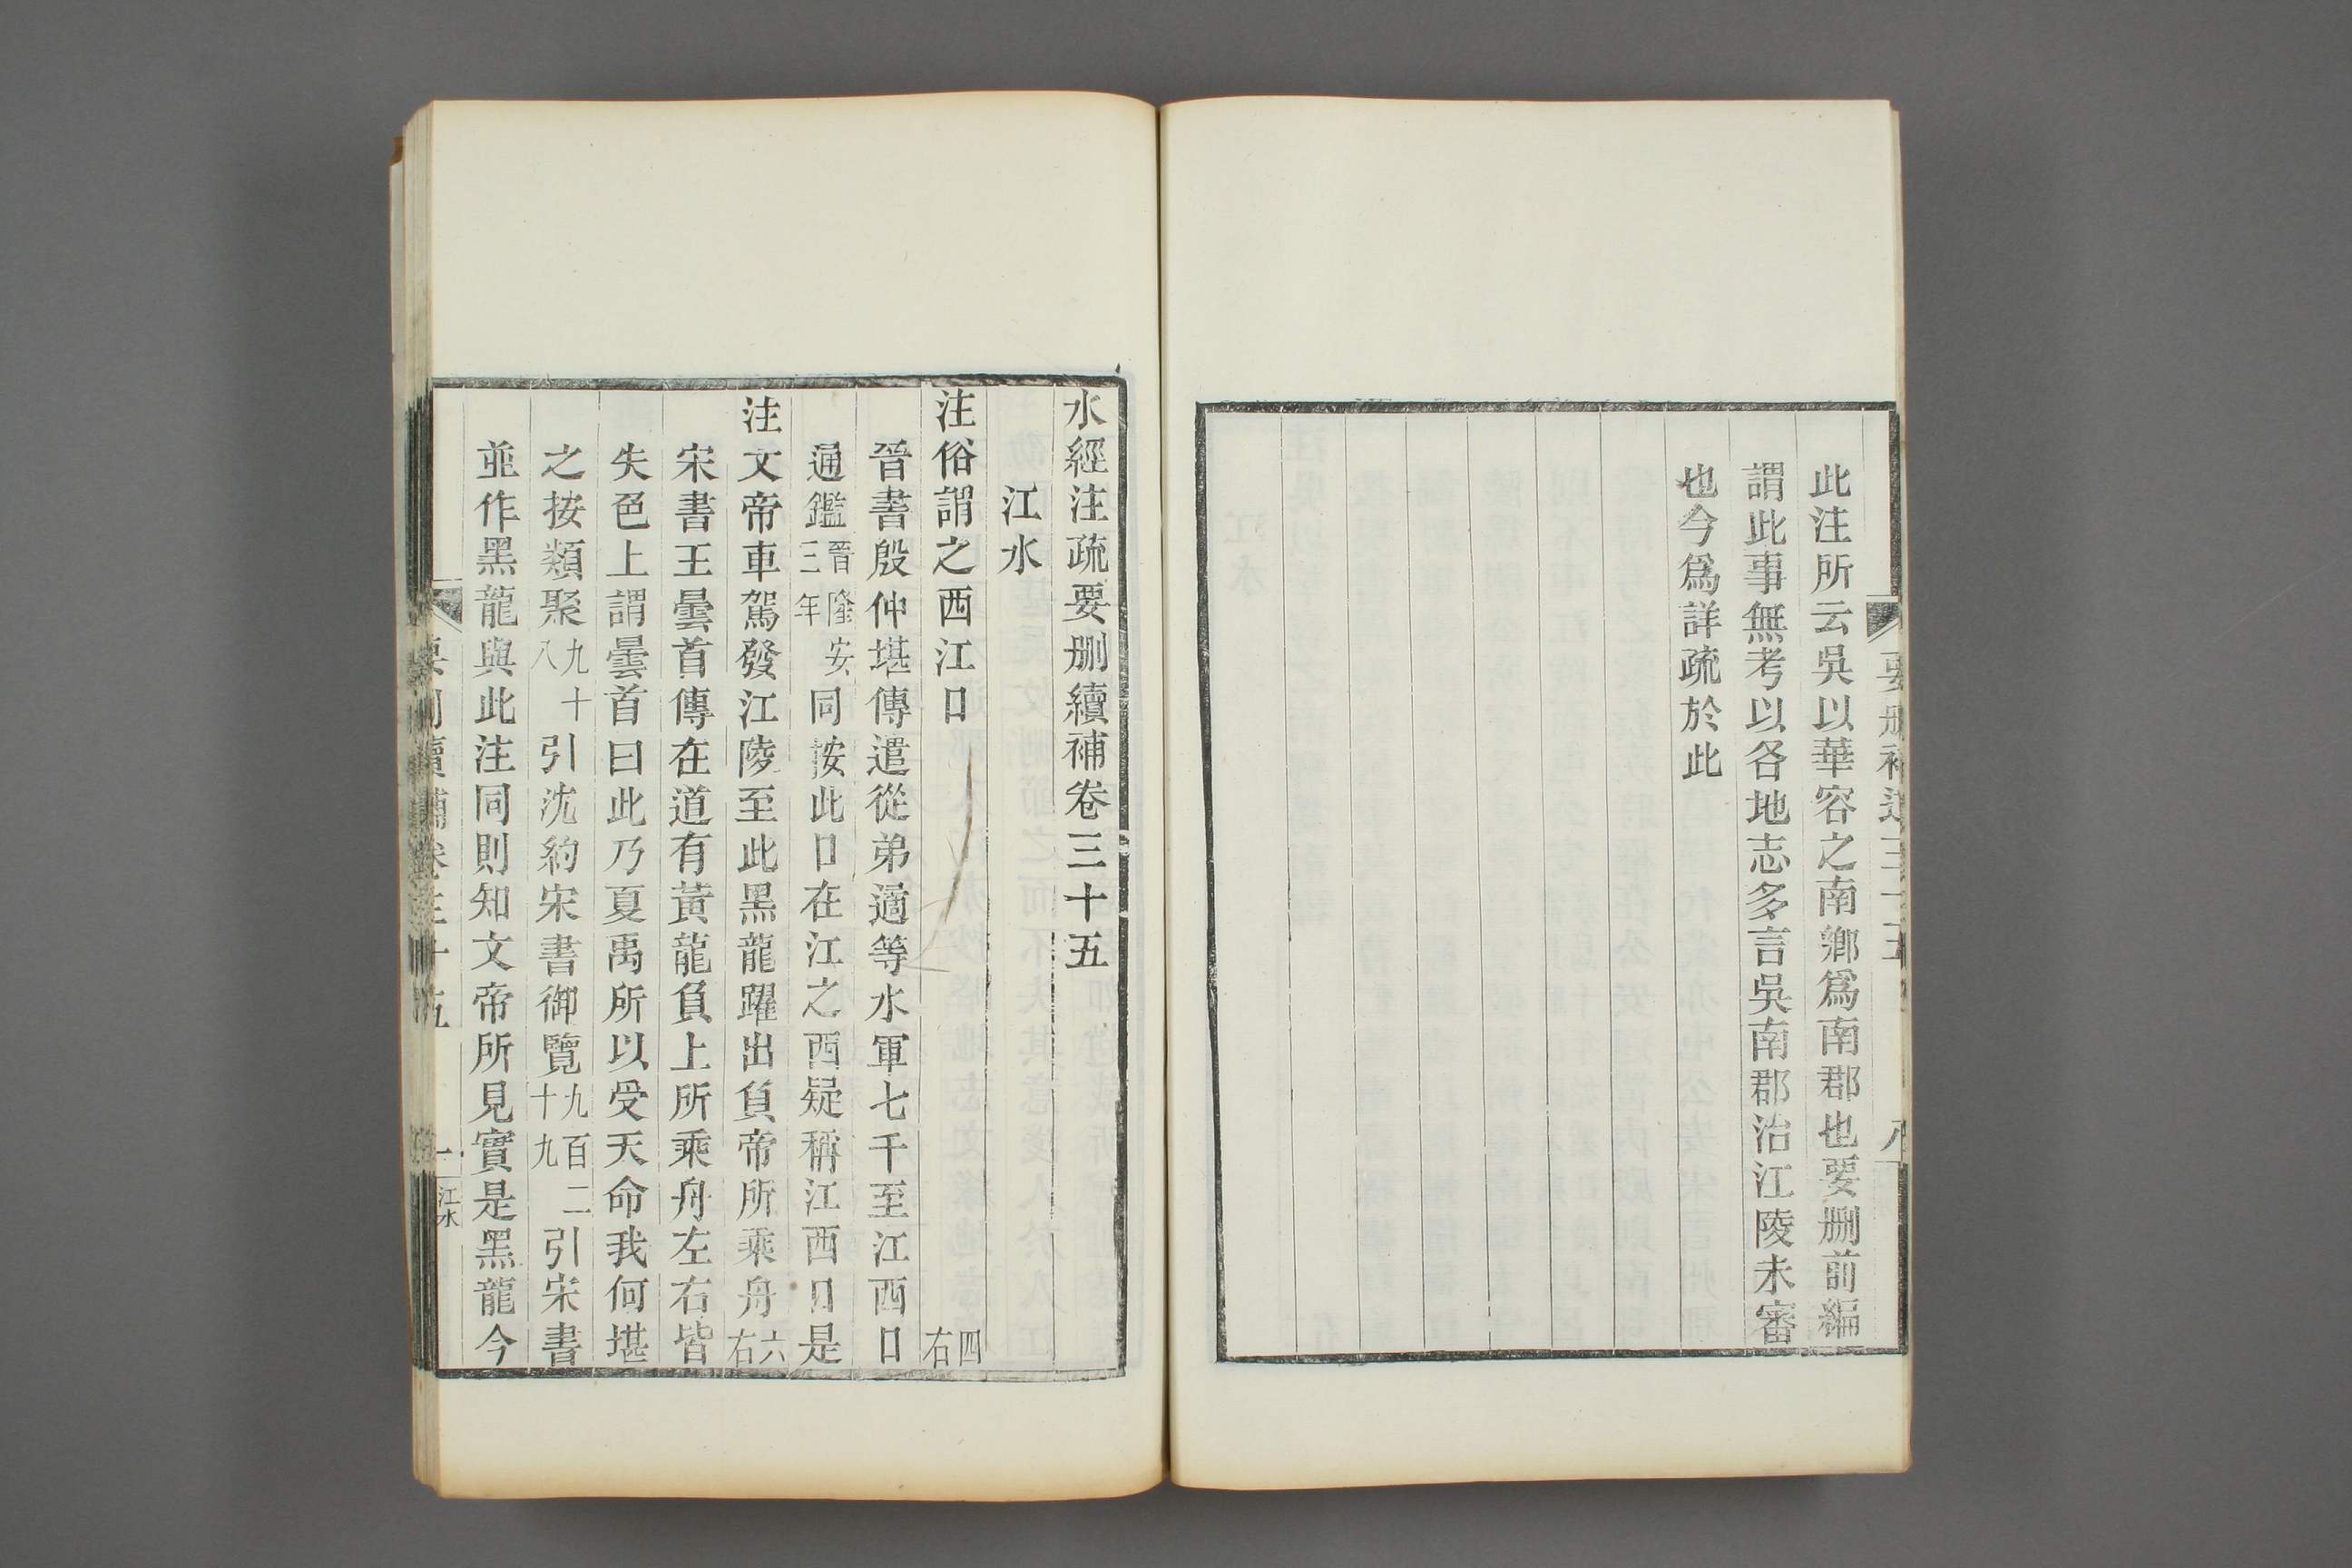 此注所云吳以華容之南鄉爲南郡也要删前編
謂此事無考以各地志多言吳南郡治江陵未審
也今爲詳疏於此
水經注疏要删續補卷三十五
江水
注俗謂之西江口四右
晉書殷仲堪傳遣從弟遹等水軍七千至江西口
通鑑晉隆安三年同按此口在江之西疑稱江西口是
注文帝車駕發江陵至此黑龍躍出負帝所乘舟六右
宋書王曇首傳在道有黃龍負上所乘舟左右皆
失色上謂曇首曰此乃夏禹所以受天命我何堪
之按類聚九十八引沈約宋書御覽九百二十九引宋書
並作黑龍與此注同則知文帝所見實是黑龍今
江水